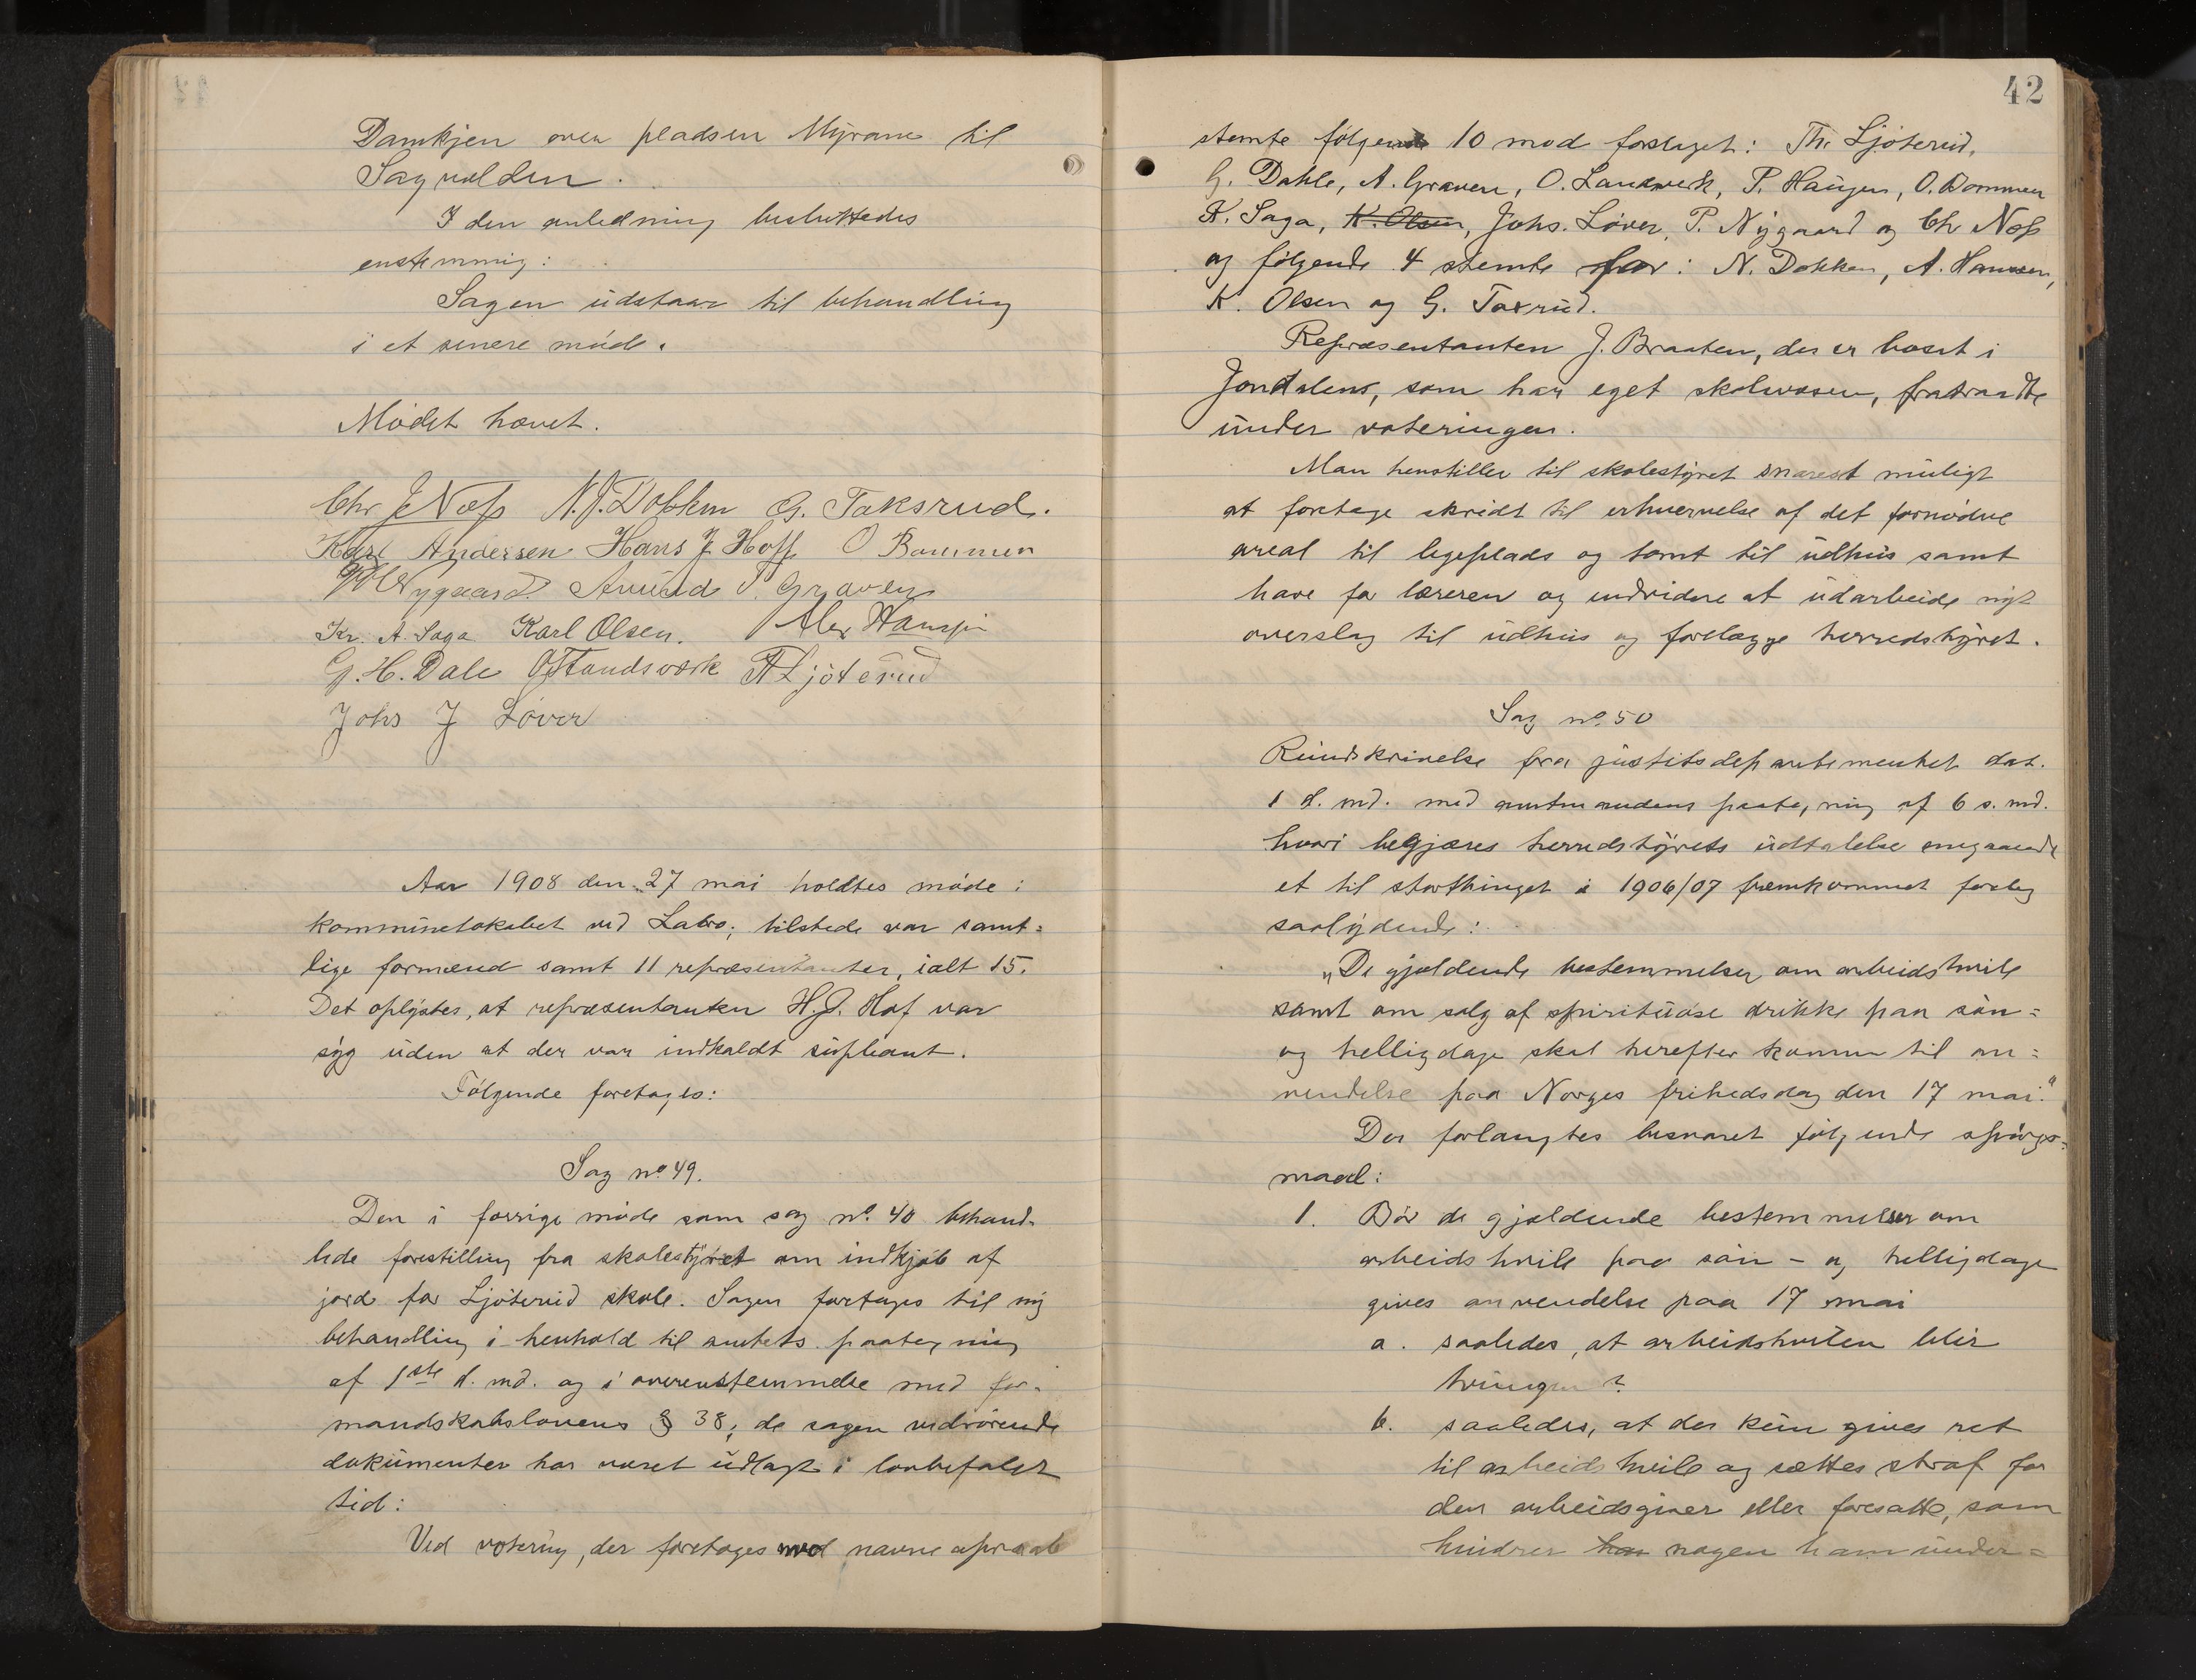 Damkjen over pladsen Myrane til
Sagvolden.
I den anledning besluttedes
enstemmig:
Sagen udstaar til behandling
i et senere møde.
Mødet hævet.
Chr J Næss N. J. Dokken G. Taksrud.
Karl Andersen Hans J Hoff O Bommen
P Nygaard. Amund P. Graven
Kr. A. Saga Karl Olsen. Alex Hansen
G. H. Dale O Landsværk Th Ljøterud
Johs J Løver
Aar 1908 den 27 mai holdtes møde i
kommunelokalet ved Labro; tilstede var samt=
lige formænd samt 11 repræsentanter, ialt 15.
Det oplystes, at repræsentanten H. J. Hof var
syg uden at der var indkaldt supleant.
Følgende foretages:
Sag no. 49.
Den i forrige møde som sag no. 40 behand-
lede forestilling fra skolestyret om indkjøb af
jord for Ljøterud skole. Sagen foretages til ny
behandling i henhold til amtets paategning
af 1ste d. md. og i overenstemmelse med for-
mandskabslovens § 38; de sagen vedrørende
dokumenter har været udlagt i lovbefalet
tid:
Ved votering, der foretages med navneopraab
42
stemte følgende 10 mod forslaget: Th. Ljøterud,
G. Dahle, A. Graven, O. Landsverk, P. Haugen, O. Bommen
K. Saga, K. Olsen, Johs. Løver, P. Nygaard og Chr Næss
og følgende 4 stemte for: N. Dokken, A. Hanssen,
K. Olsen og G. Taxrud.
Repræsentanten J. Braaten, der er bosat i
Jondalens, som har eget skolevæsen, fratraadte
under voteringen.
Man henstiller til skolestyret snarest muligt
at foretage skridt til erhvervelse af det fornødne
areal til legeplads og tomt til udhus samt
have for læreren og endvidere at udarbeide nyt
overslag til udhus og forelægge herredstyret.
Sag no. 50
Rundskrivelse fra justitsdepartementet dat.
1 d. md. med amtmandens paategning af 6 s. md.
hvori begjæres herredstyrets udtalelse angaaende
et til storthinget i 1906/07 fremkommet forslag
saalydende:
„De gjældende bestemmelser om arbeidshvile
samt om salg af spirituøse drikke paa søn=
og helligdage skal herefter komme til an=
vendelse paa Norges frihedsdag den 17 mai."
Der forlangtes besvaret følgende spørgs=
maal:
1. Bør de gjældende bestemmelser om
arbeidshvile paa søn- og helligdage
gives anvendelse paa 17 mai
a. saaledes, at arbeidshvilen blir
tvungen?
b. saaledes, at der kun gives ret
til arbeidshvile og sættes straf for
den arbeidsgiver eller foresatte, som
hindrer han nogen ham under=